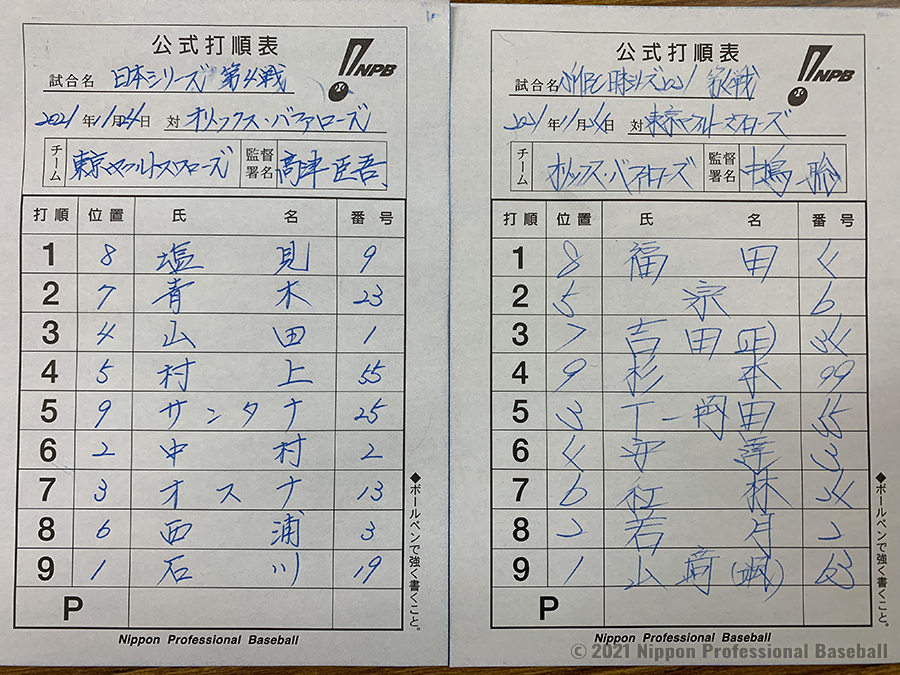 公式打順表
NPB
試合名 日本シリーズ 第4戦
2021年11月24日 対 オリックス・バファローズ
チーム 東京ヤクルトスワローズ 監督署名 高津臣吾
打順 位置 氏名 番号
1 8 塩見 9
2 7 青木 23
3 4 山田 1
4 5 村上 55
5 9 サンタナ 25
6 2 中村 2
7 3 オスナ 13
8 6 西浦 3
9 1 石川 19
P
◆ボールペンで強く書くこと。
Nippon Professional Baseball
公式打順表
NPB
試合名 SMBC日本シリーズ2021 第4戦
2021年11月24日 対 東京ヤクルトスワローズ
チーム オリックス・バファローズ 監督署名 中嶋聡
打順 位置 氏名 番号
1 8 福田 4
2 5 宗 6
3 7 吉田(正) 34
4 9 杉本 99
5 3 T-岡田 55
6 4 安達 3
7 6 紅林 24
8 2 若月 2
9 1 山﨑(颯) 63
P
◆ボールペンで強く書くこと。
Nippon Professional Baseball
© 2021 Nippon Professional Baseball